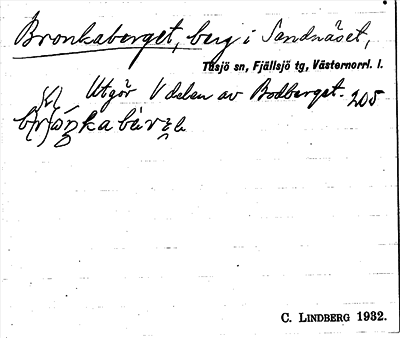 Bronkaberget, berg i Sandnäset,
Tåsjö sn, Fjällsjö tg, Västernorrl. l.
Utgör V delen av Bodberget. 205
C. LINDBERG 1932.